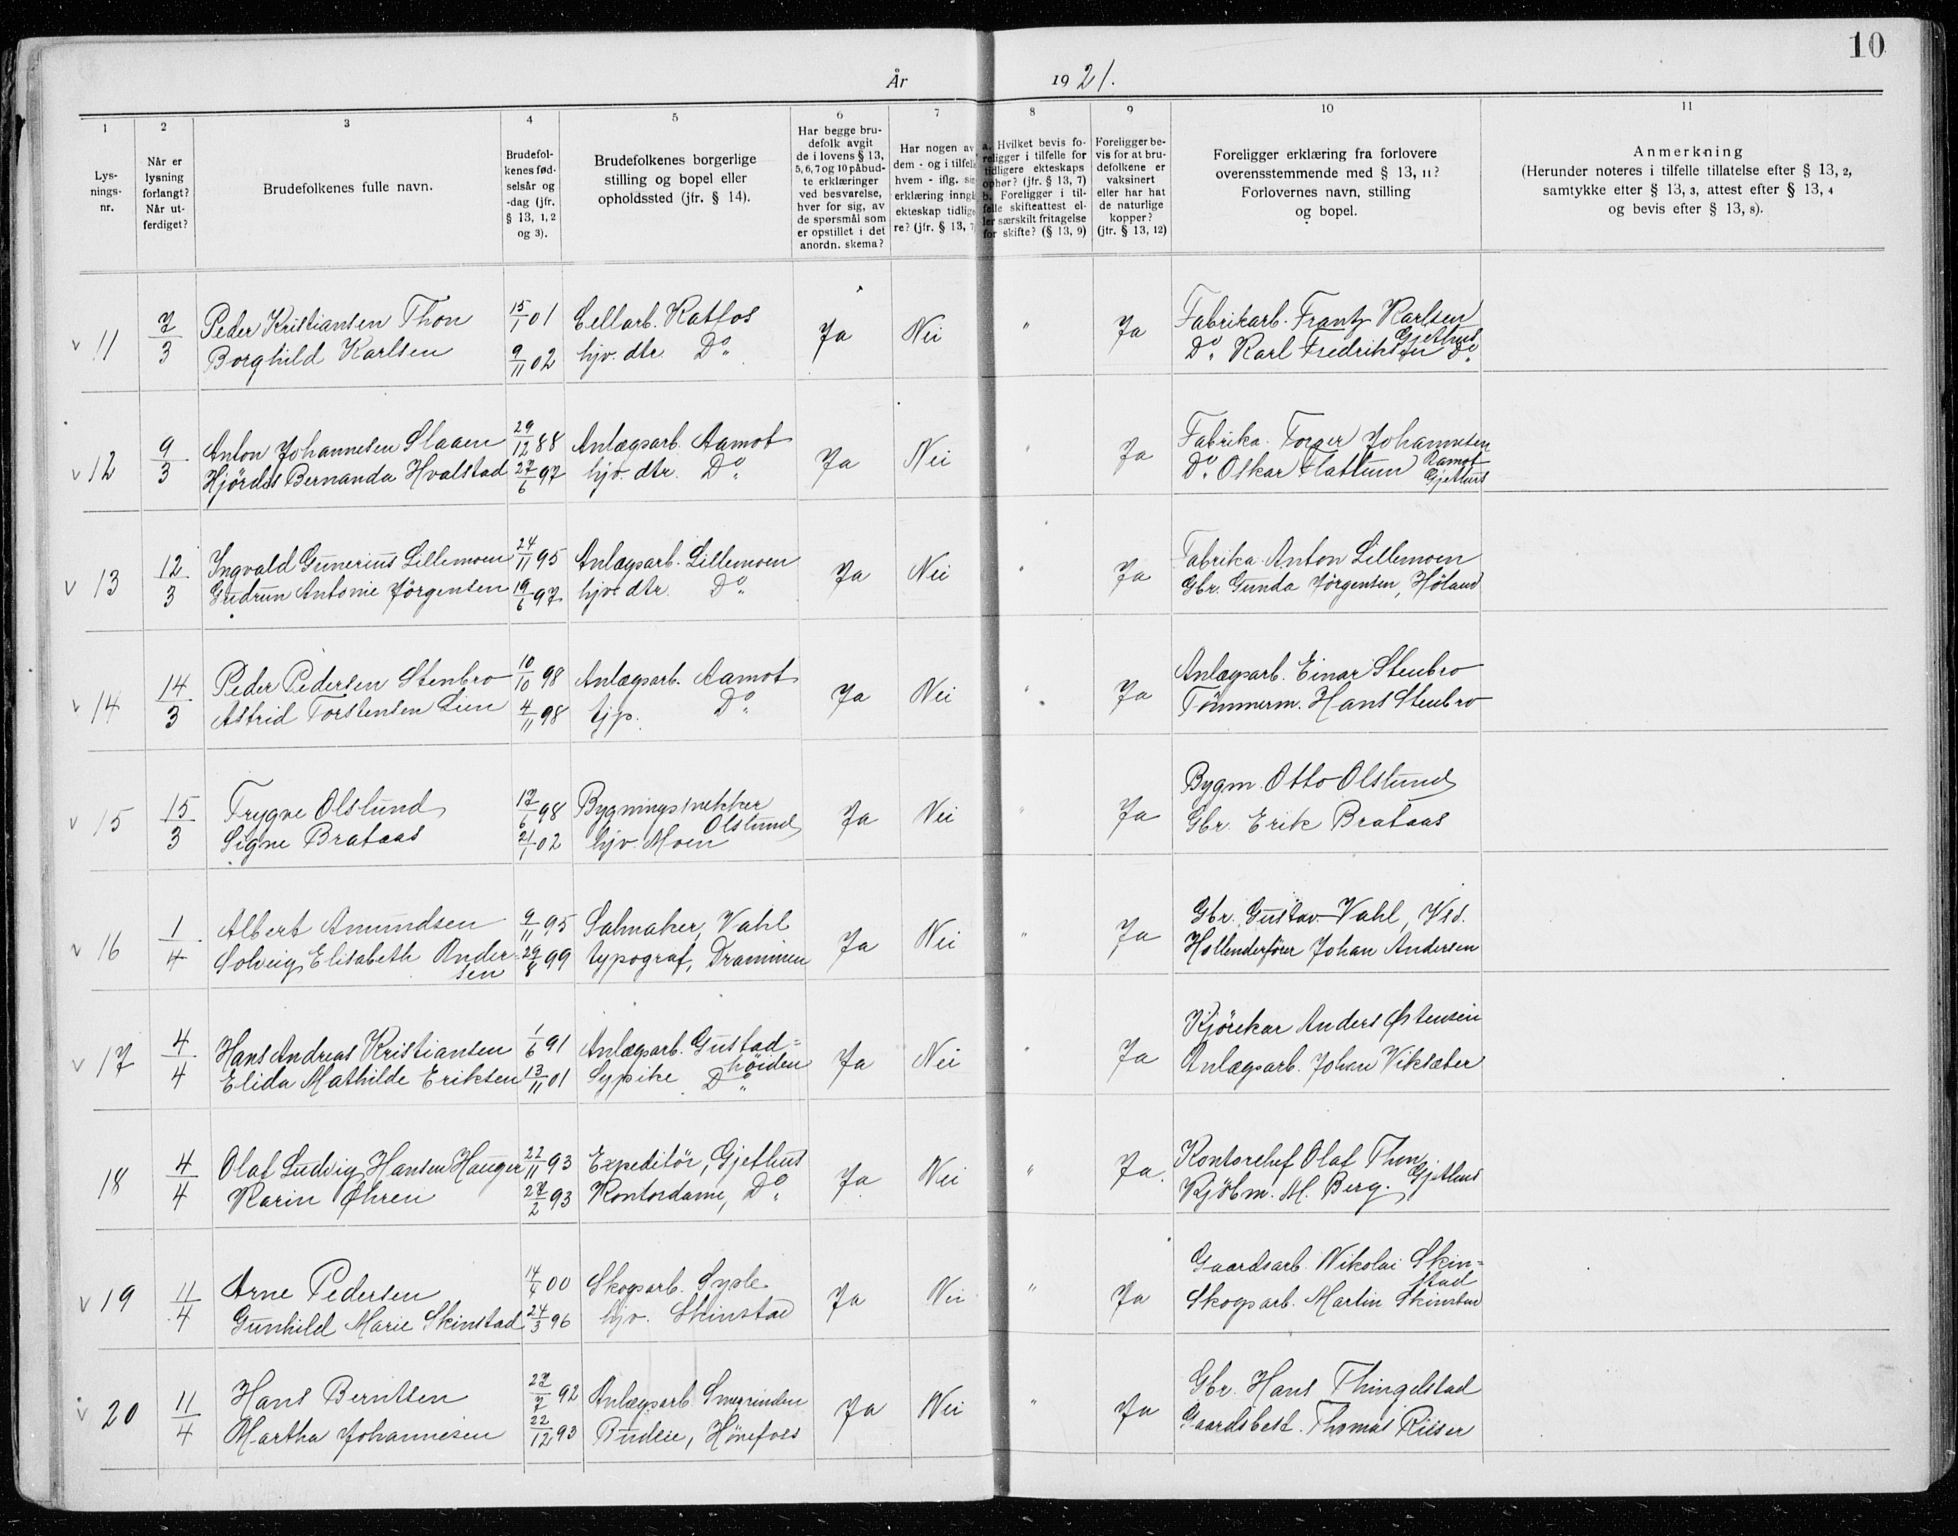 10
År 1921.
1 2 3 4 5 6 7 8 9 10 11
Lys-
nings-
nr.
Når er
lysning
forlangt?
Når ut-
ferdiget?
Brudefolkenes fulle navn.
Brudefol-
kenes fød-
selsår og
-dag (jfr.
§ 13, 1, 2
og 3).
Brudefolkenes borgerlige
stilling og bopel eller
opholdssted (jfr. § 14).
Har begge bru-
defolk avgit
de i lovens § 13,
5, 6, 7 og 10 påbud-
te erklæringer
ved besvarelse,
hver for sig, av
de spørsmål som
er opstillet i det
anordn. skema?
Har nogen av
dem - og i tilfelle
hvem - iflg. sin
erklæring inngå
ekteskap tidlige
re? (jfr. § 13, 7
a. Hvilket bevis fo-
religger i tilfelle for
tidligere ekteskaps
ophør? (jfr. § 13, 7)
b. Foreligger i til-
felle skifteattest el-
ler særskilt fritagelse
for skifte? (§ 13, 9)
Foreligger be-
vis for at bru-
defolkene er
vaksinert
eller har hat
de naturlige
kopper?
(jfr. § 13, 12)
Foreligger erklæring fra forlovere
overensstemmende med § 13, 11?
Forlovernes navn, stilling
og bopel.
Anmerkning
(Herunder noteres i tilfelle tillatelse efter § 13, 2,
samtykke efter § 13, 3, attest efter § 13, 4
og bevis efter § 13, 8).
v 11 7/3 Peder Kristiansen Thon 15/1 01 Cellarb. Katfos Ja Nei " Ja Fabrikarb. Frantz Karlsen Gjethus
Borghild Karlsen 9/11 02 hjv. dtr. Do. Do. Karl Fredriksen Do.
v 12 9/3 Anton Johannesen Slaaen 29/12 88 Anlægsarb. Aamot Ja Nei " Ja Fabrika. Torger Johannesen Aamot
Hjørdis Bernanda Hvalstad 27/6 97 hjv. dtr. Do. Do. Oskar Flattum Gjethus
v 13 12/3 Ingvald Gunerius Lillemoen 24/11 95 Anlægsarb. Lillemoen Ja Nei " Ja Fabrika. Anton Lillemoen
Gudrun Antonie Jørgensen 19/6 97 hjv. dtr. Do. Gbr. Gunda Jørgensen, Høland
v 14 14/3 Peder Pedersen Stenbro 10/10 98 Anlægsarb. Aamot Ja Nei " Ja Anlægsarb. Einar Stenbro
Astrid Torstensen Lien 4/11 98 tjp. Do. Tømmerm. Hans Stenbro
v 15 15/3 Trygve Olslund 17/6 98 Bygningssnekker Olslund Ja Nei " Ja Bygm. Otto Olslund
Signe Brataas 21/1 02 hjv. Moen Gbr. Erik Brataas
v 16 1/4 Albert Amundsen 9/11 95 Salmaker, Vahl Ja Nei " Ja Gbr. Gustav Vahl,
Solveig Elisabeth Ander-
sen 29/8 99 typograf, Drammen Hollenderfører Johan Andersen
v 17 4/4 Hans Andreas Kristiansen 1/6 91 Anlægsarb. Gustad=
høiden Ja Nei " Ja Kjørekar Anders Østensen
Elida Mathilde Eriksen 13/11 01 Sypike Do. Anlægsarb. Johan Viksæter
18 4/4 Olaf Ludvig Hansen Hauger 22/11 93 Expeditør, Gjethus Ja Nei " Ja. Kontorchef Olaf Thon Gjethus
Karin Øhren 27/2 93 Kontordame, Do. Kjøbm. M. Berg.
v 19 11/4 Arne Pedersen 14/4 00 Skogsarb. Sysle Ja Nei " Ja Gaardsarb. Nikolai Skin=
stad
Gunhild Marie Skinstad 24/3 96 hjv. Skinstad Skogsarb. Martin Skinstad
v 20 11/4 Hans Berntsen 27/7 92 Anlægsarb. Smegrinden Ja Nei " Ja Gbr. Hans Thingelstad
Martha Johannesen 22/12 93 Budeie, Hönefoss Gaardsbest. Thomas Riiser